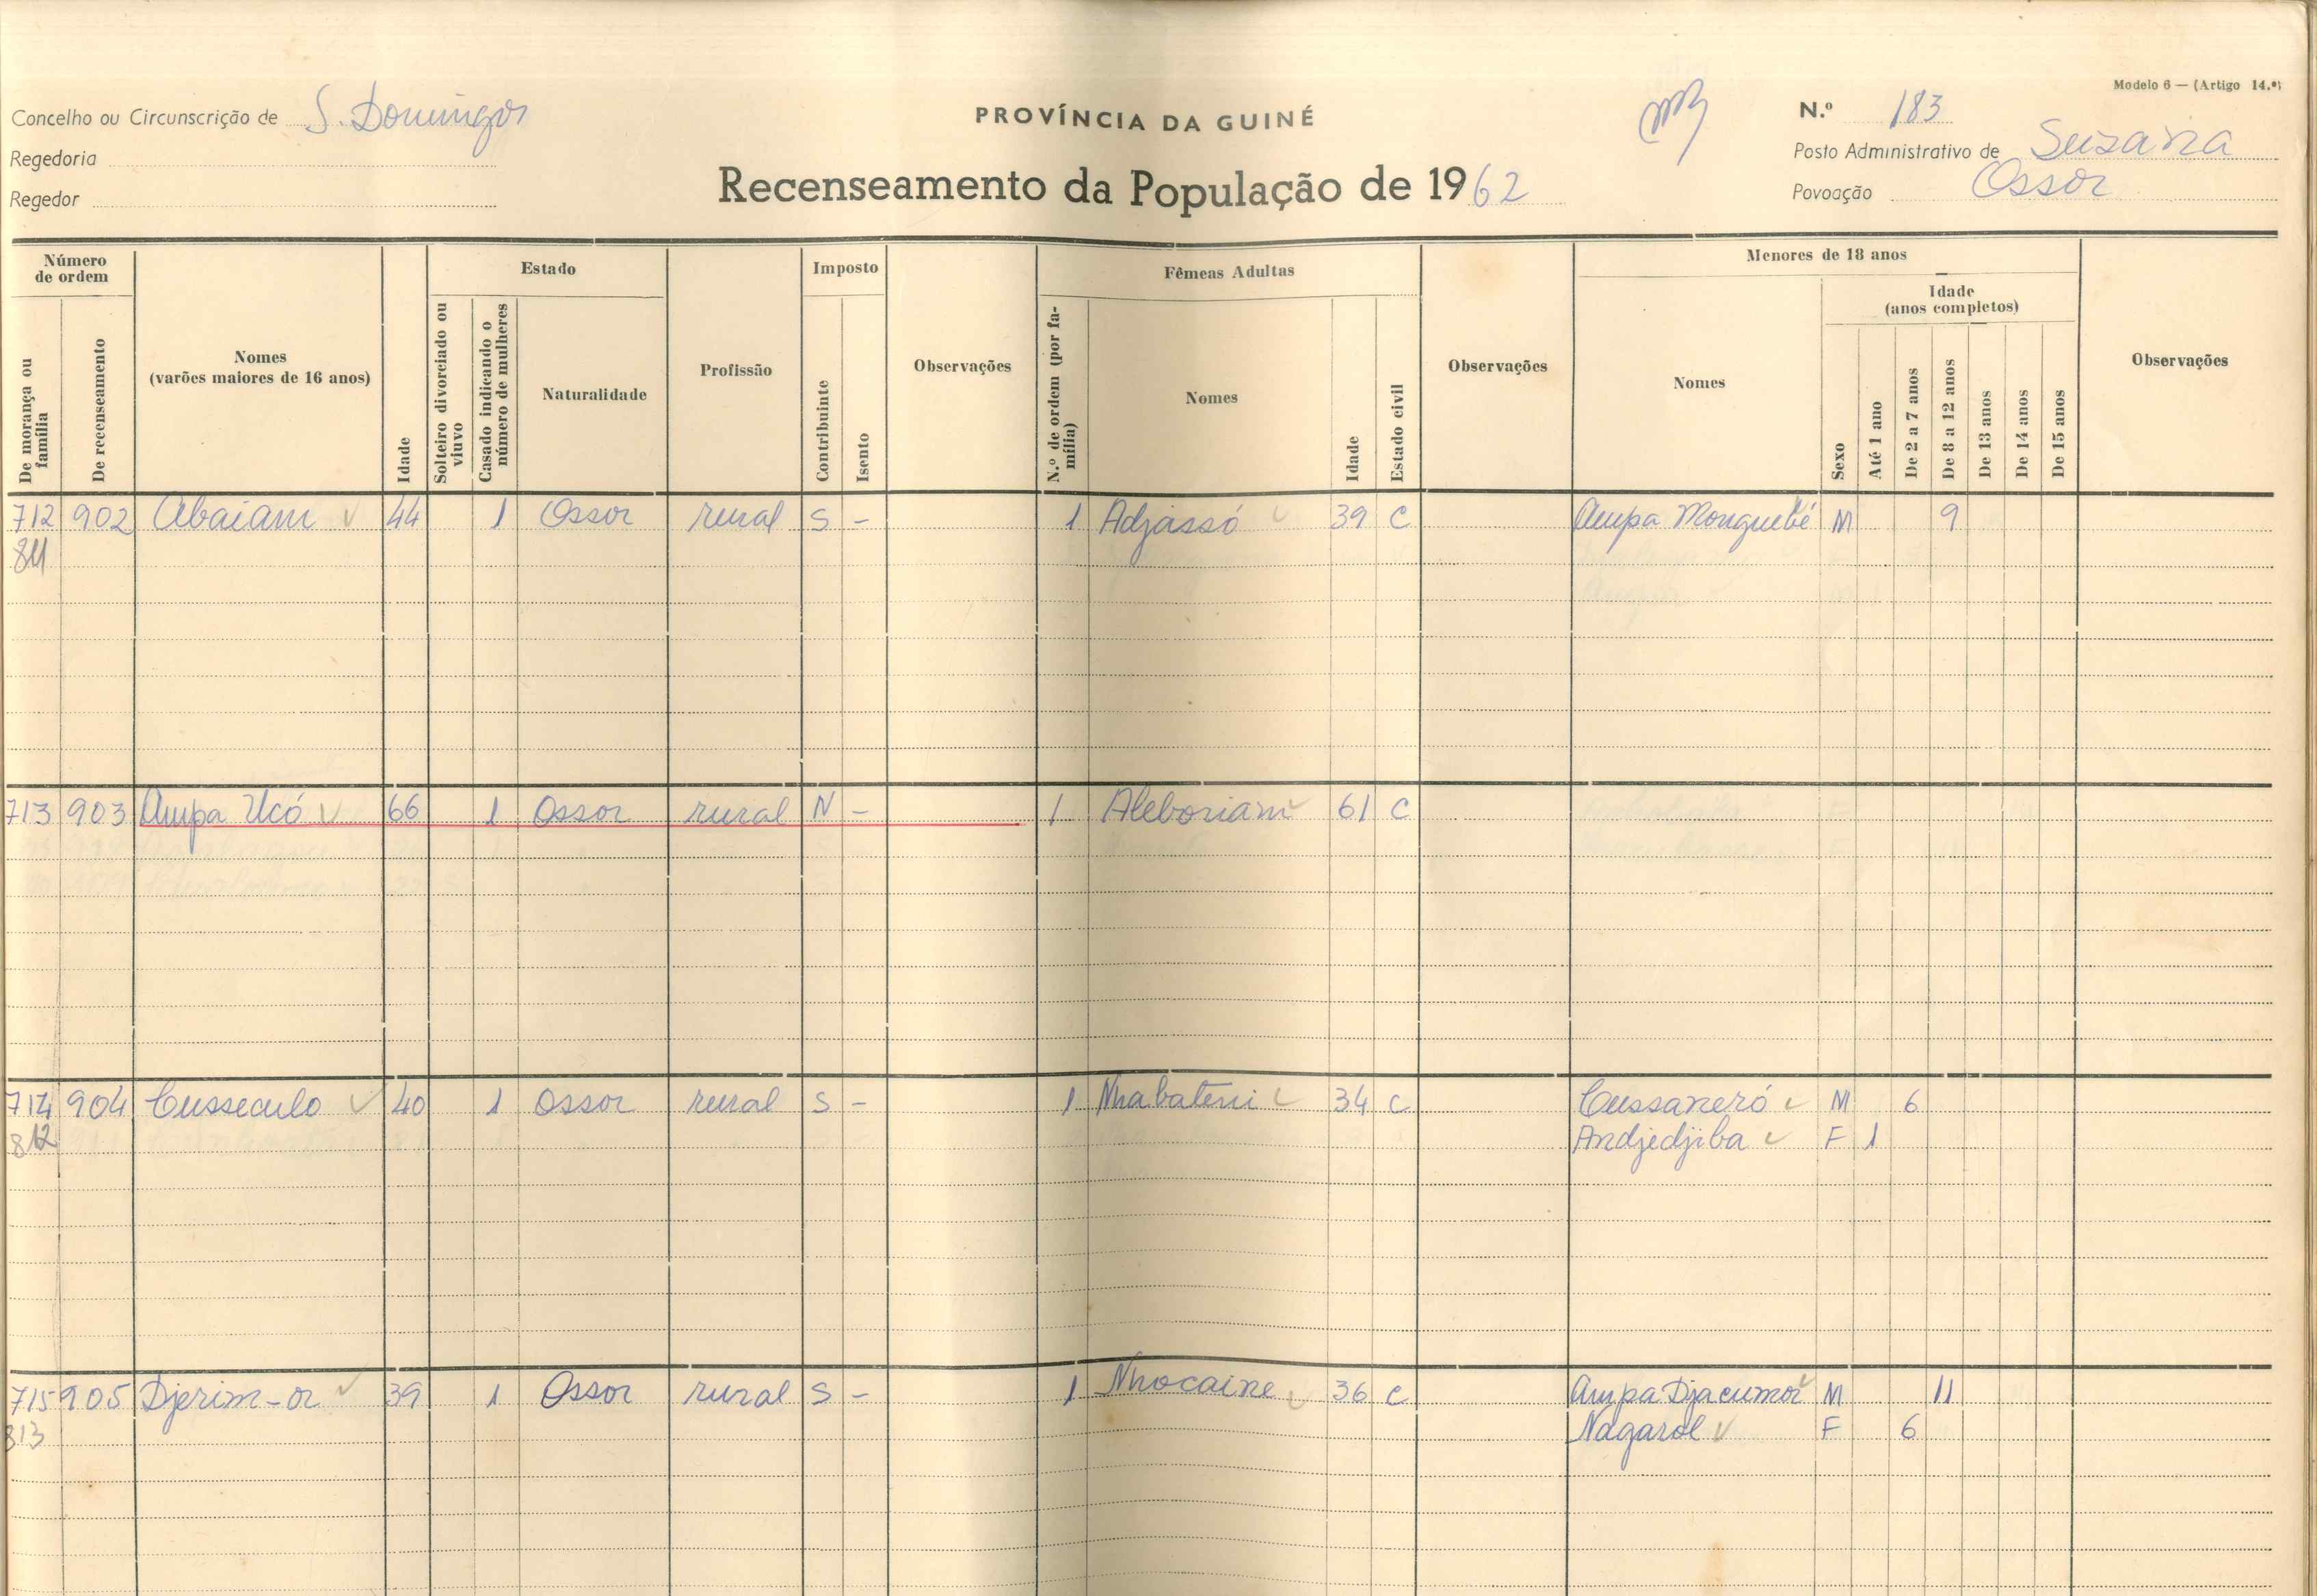 Modelo 6 — (Artigo 14.º)
Concelho ou Circunscrição de S. Domingos
PROVÍNCIA DA GUINÉ
N.º 183
Regedoria
Posto Administrativo de Suzana
Regedor
Recenseamento da População de 1962
Povoação Ossor
Número de ordem
Estado
Imposto
Fêmeas Adultas
Menores de 18 anos
Idade (anos completos)
De morança ou família
De recenseamento
Nomes (varões maiores de 16 anos)
Idade
Solteiro divorciado ou viuvo
Casado indicando o número de mulheres
Naturalidade
Profissão
Contribuinte
Isento
Observações
N.º de ordem (por família)
Nomes
Idade
Estado civil
Observações
Nomes
Sexo
Até 1 ano
De 2 a 7 anos
De 8 a 12 anos
De 13 anos
De 14 anos
De 15 anos
Observações
712 902 Abaiam 44 1 Ossor rural S - 1 Adjassó 39 C Ampa Monguebé M 9
811
713 903 Ampa Ucó 66 1 Ossor rural N - 1 Aleboriam 61 C
714 904 Cusseculo 40 1 Ossor rural S - 1 Nhabateni 34 C Cussaneró M 6
812 Andjedjiba F 1
715 905 Djerim-or 39 1 Ossor rural S - 1 Nhocaine 36 C Ampa Djacumor M 11
813 Nagarol F 6